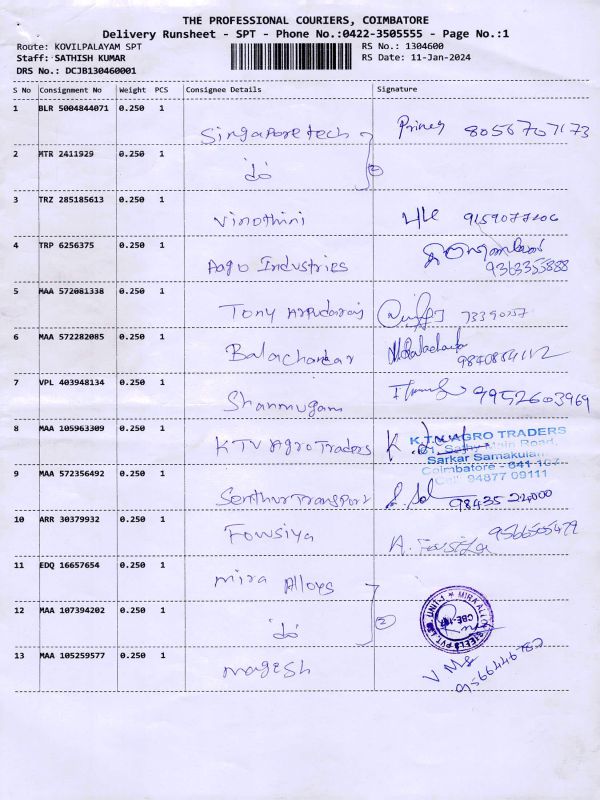 THE PROFESSIONAL COURIERS, COIMBATORE
Delivery Runsheet - SPT - Phone No.:0422-3505555 - Page No.:1
Route: KOVILPALAYAM SPT RS No.: 1304600
Staff: SATHISH KUMAR RS Date: 11-Jan-2024
DRS No.: DCJB130460001
S No Consignment No Weight PCS Consignee Details Signature
1 BLR 5004844071 0.250 1 Singapore tech 8056707173
2 MTR 2411929 0.250 1 do 2
3 TRZ 285185613 0.250 1 Vinothini
4 TRP 6256375 0.250 1 Aagro Industries 9363353888
5 MAA 572081338 0.250 1 Tony
6 MAA 572282085 0.250 1 Balachandar
7 VPL 403948134 0.250 1 Shanmugam 9952603969
8 MAA 105963309 0.250 1 KTV Agro Traders
K.T.V.AGRO TRADERS
Main Road,
Sarkar Samakulam
Coimbatore - 641 107
Cell: 94877 09111
9 MAA 572356492 0.250 1 Senthur Transport 98435 22000
10 ARR 30379932 0.250 1 Fowsiya A. Fowsiya
11 EDQ 16657654 0.250 1 Mira Alloys
12 MAA 107394202 0.250 1 do 2
13 MAA 105259577 0.250 1 Magesh
9566446782